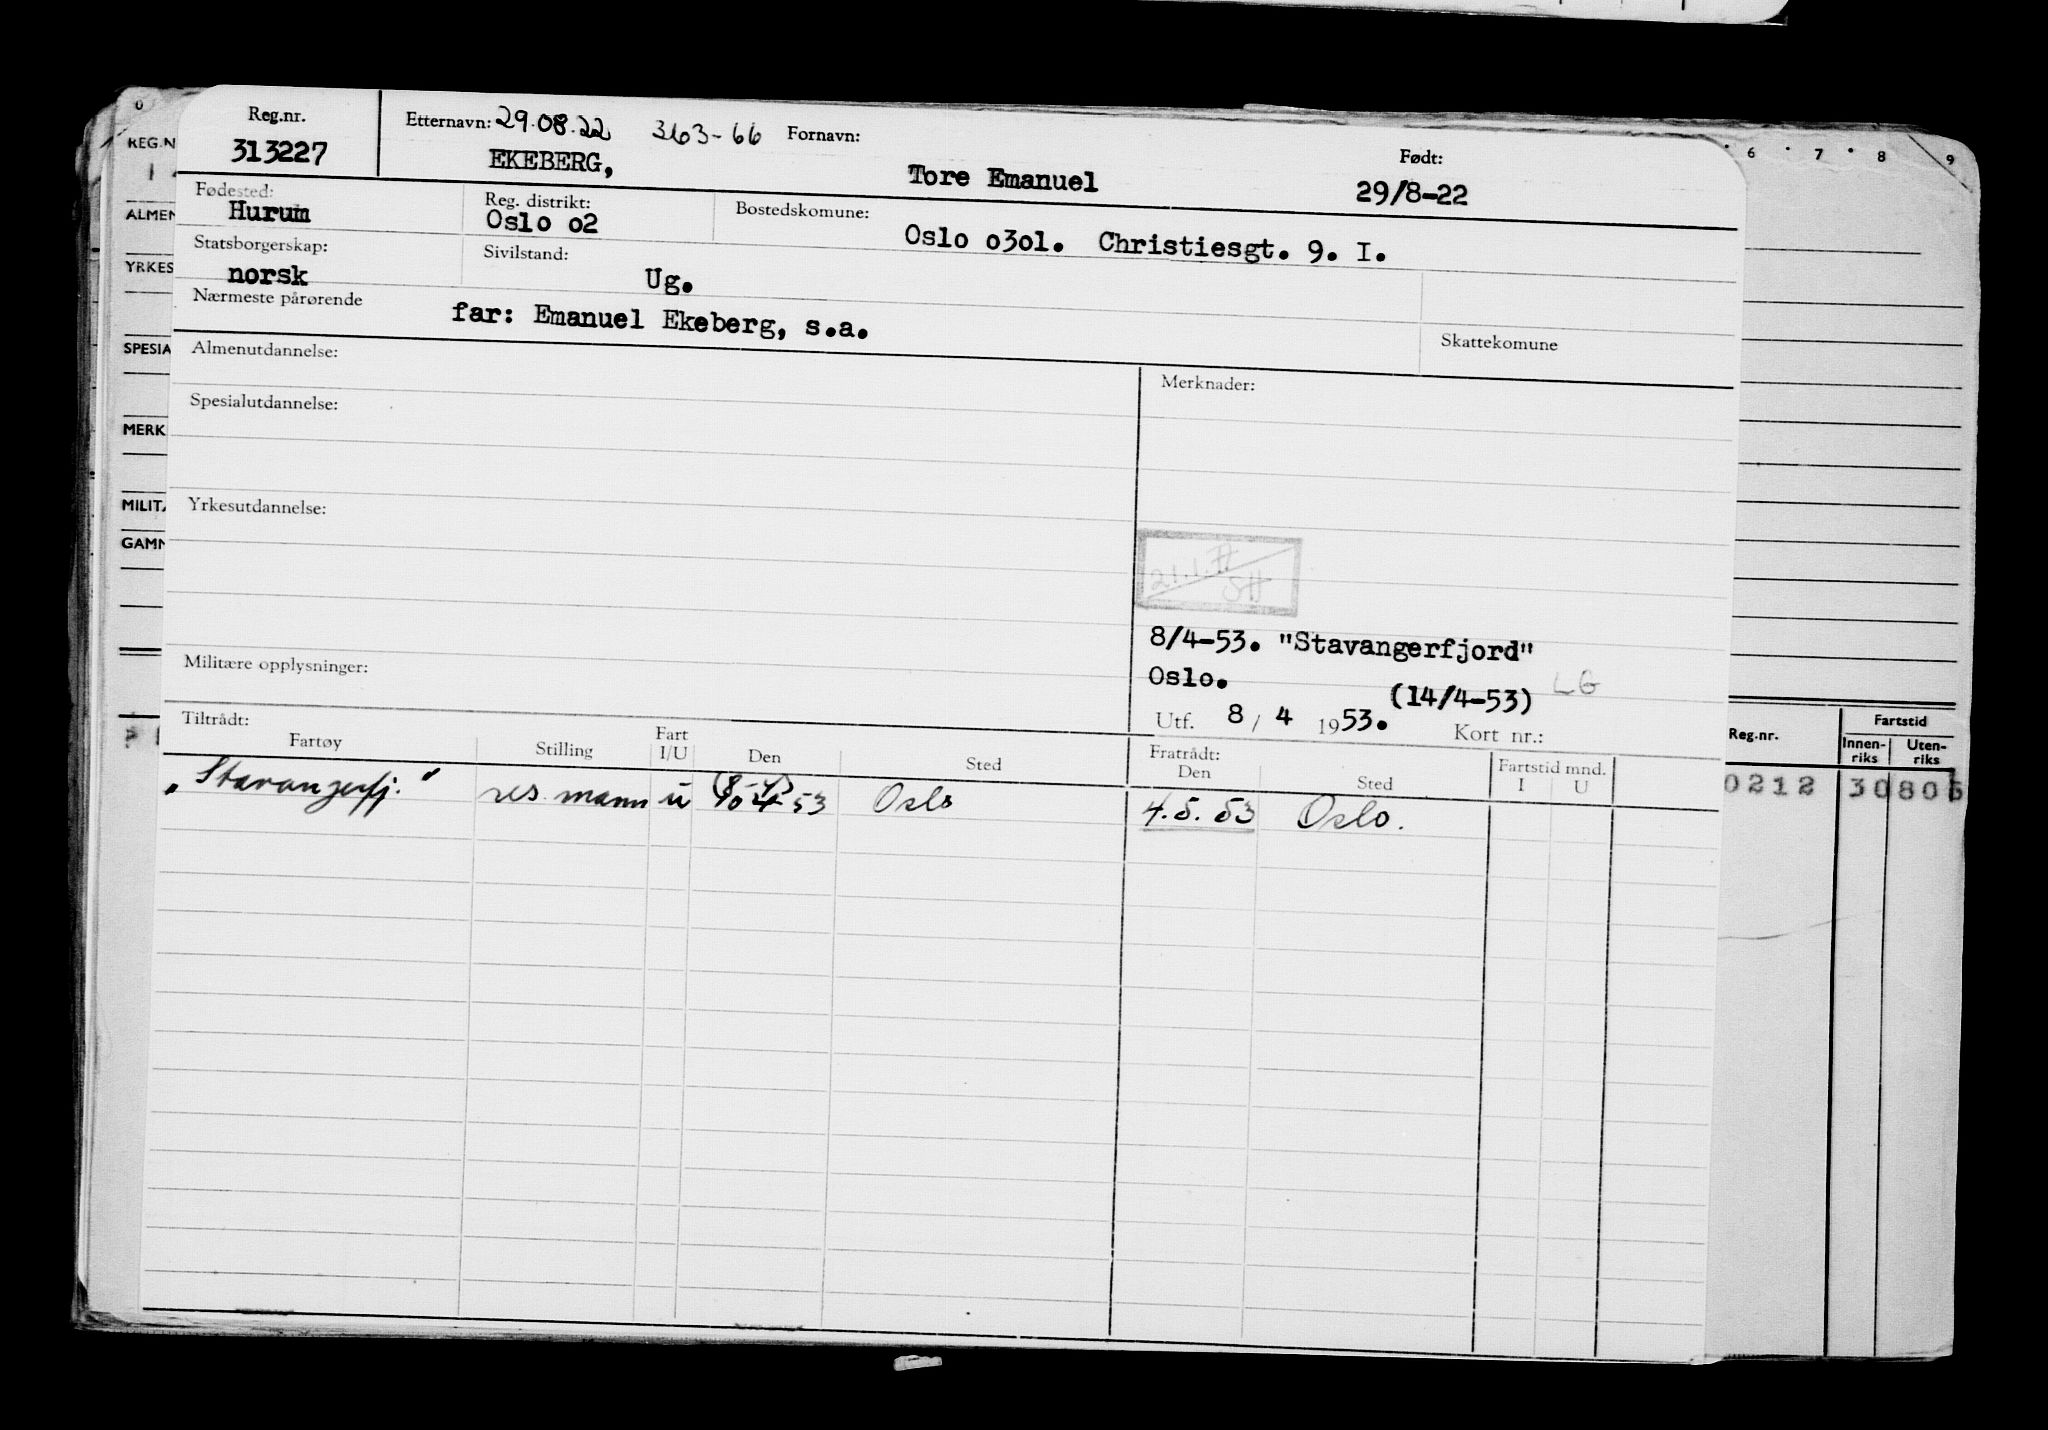 Reg.nr. Etternavn: 29.08.22 363-66 Fornavn: Født:
313227 EKEBERG, Tore Emanuel 29/8-22
Fødested: Reg. distrikt: Bostedskomune:
Hurum Oslo o2 Oslo o3o1. Christiesgt. 9. I.
Statsborgerskap: Sivilstand:
norsk Ug.
Nærmeste pårørende
far: Emanuel Ekeberg, s.a.
Skattekomune
Almenutdannelse: Merknader:
Spesialutdannelse:
Yrkesutdannelse:
8/4-53. "Stavangerfjord"
Oslo.
(14/4-53) LG
Militære opplysninger:
Utf. 8 / 4 1953. Kort nr.:
Tiltrådt: Fratrådt:
Fartøy Stilling Fart I/U Den Sted Den Sted Fartstid mnd. I U
"Stavangerfj." res. mann u 53 Oslo 4.5.53 Oslo.
REG.N
ALMEN
YRKES
SPESIA
MERK
MILITÆ
GAMM
6 7 8 9
Reg.nr. Fartstid
Innen-riks Uten-riks
0212 30806